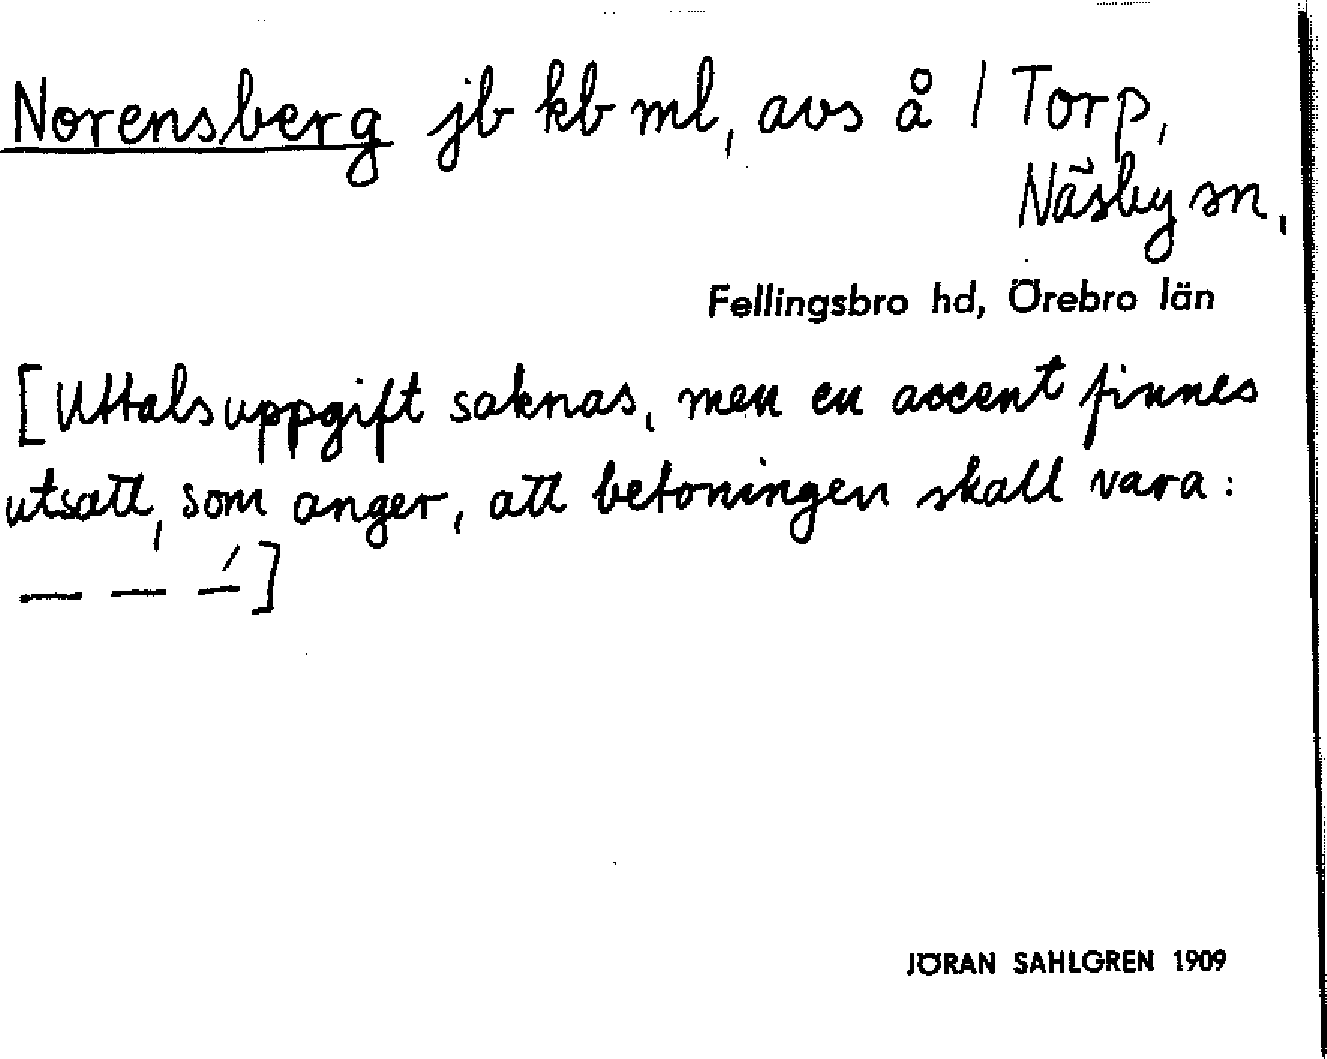 Norensberg jb kb ml, avs å / Torp,
Näsby sn,
Fellingsbro hd, Örebro län
[Uttalsuppgift saknas, men en accent finnes
utsatt, som anger, att betoningen skall vara:
— — —́]
JÖRAN SAHLGREN 1909